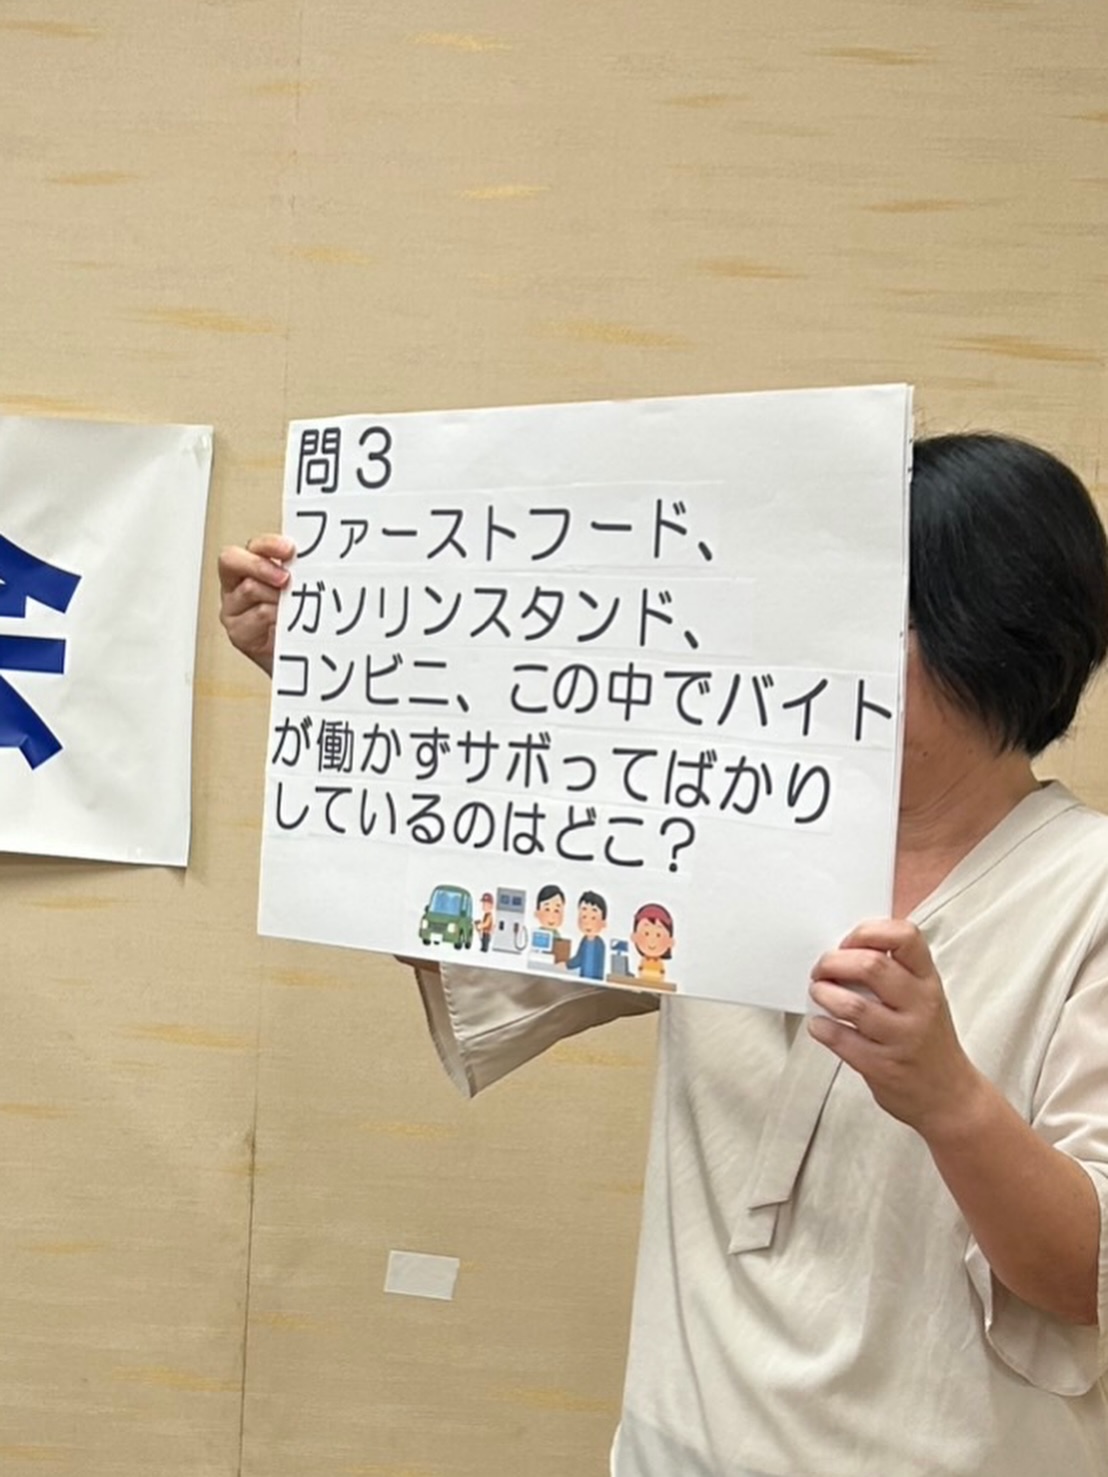 問３
ファーストフード、
ガソリンスタンド、
コンビニ、この中でバイト
が働かずサボってばかり
しているのはどこ？